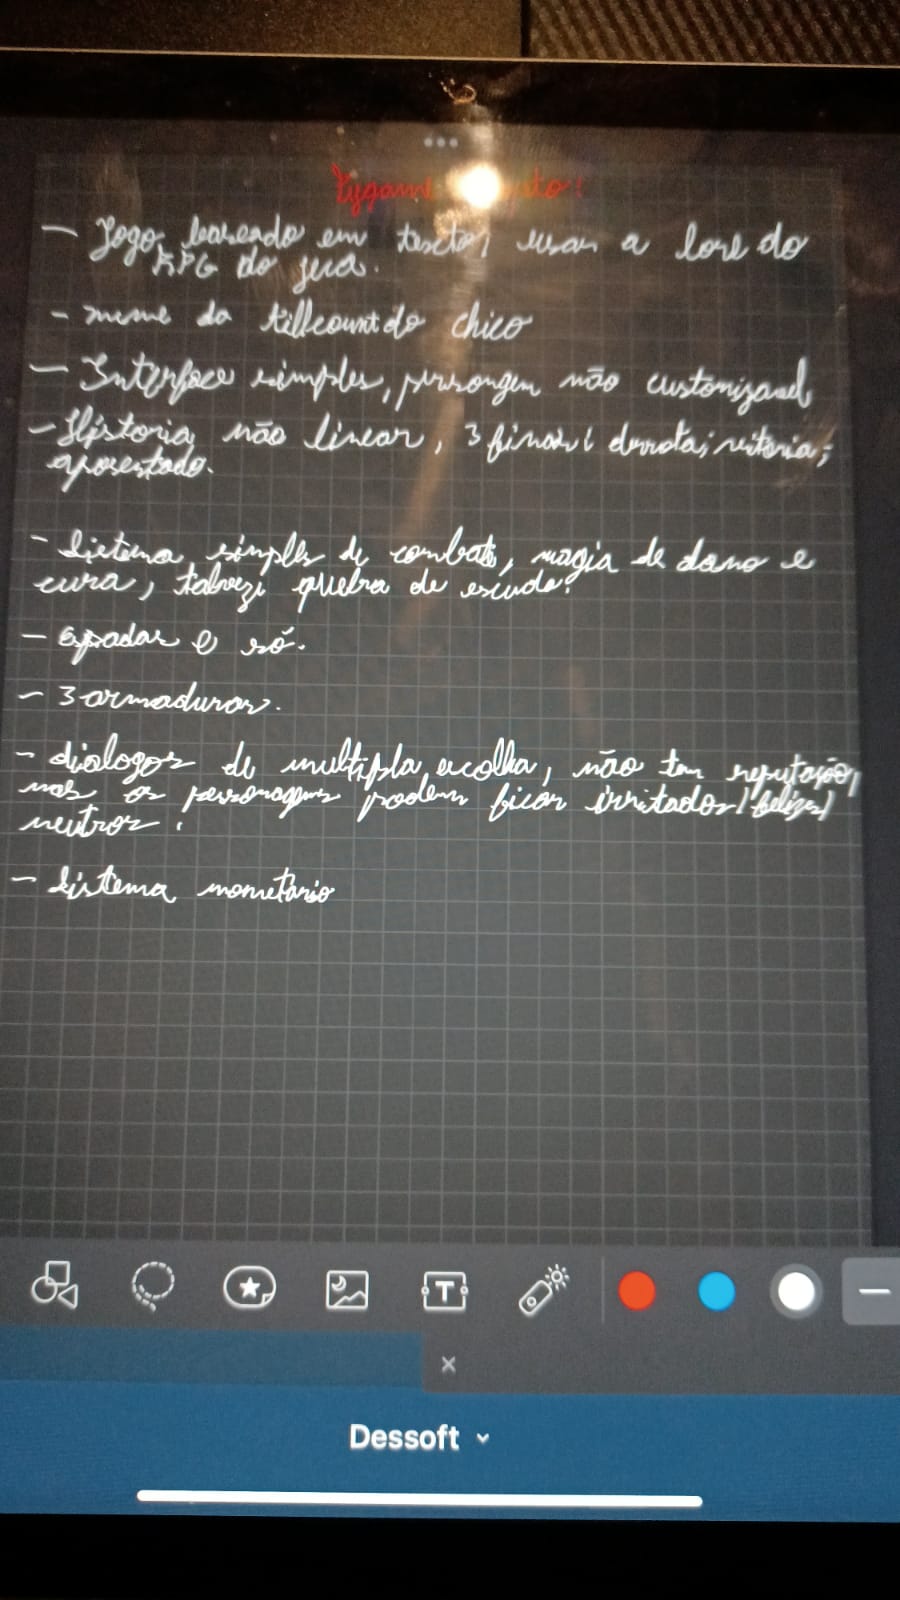 Pygame
- Jogo baseado em texto, usar a lore do
RPG do
- meme da killcount do chico
- Interface simples, personagem não customizavel
- História não linear, 3 finais derrota; vitoria;
aposentado.
- Sistema simples de combate, magia de dano e
cura, talvez quebra de escudo.
- Espadas e só.
- 3 armaduras.
- dialogos de multipla escolha, não tem reputação,
mas os personagens podem ficar irritados/felizes/
neutros.
- Sistema monetario
T
×
Dessoft